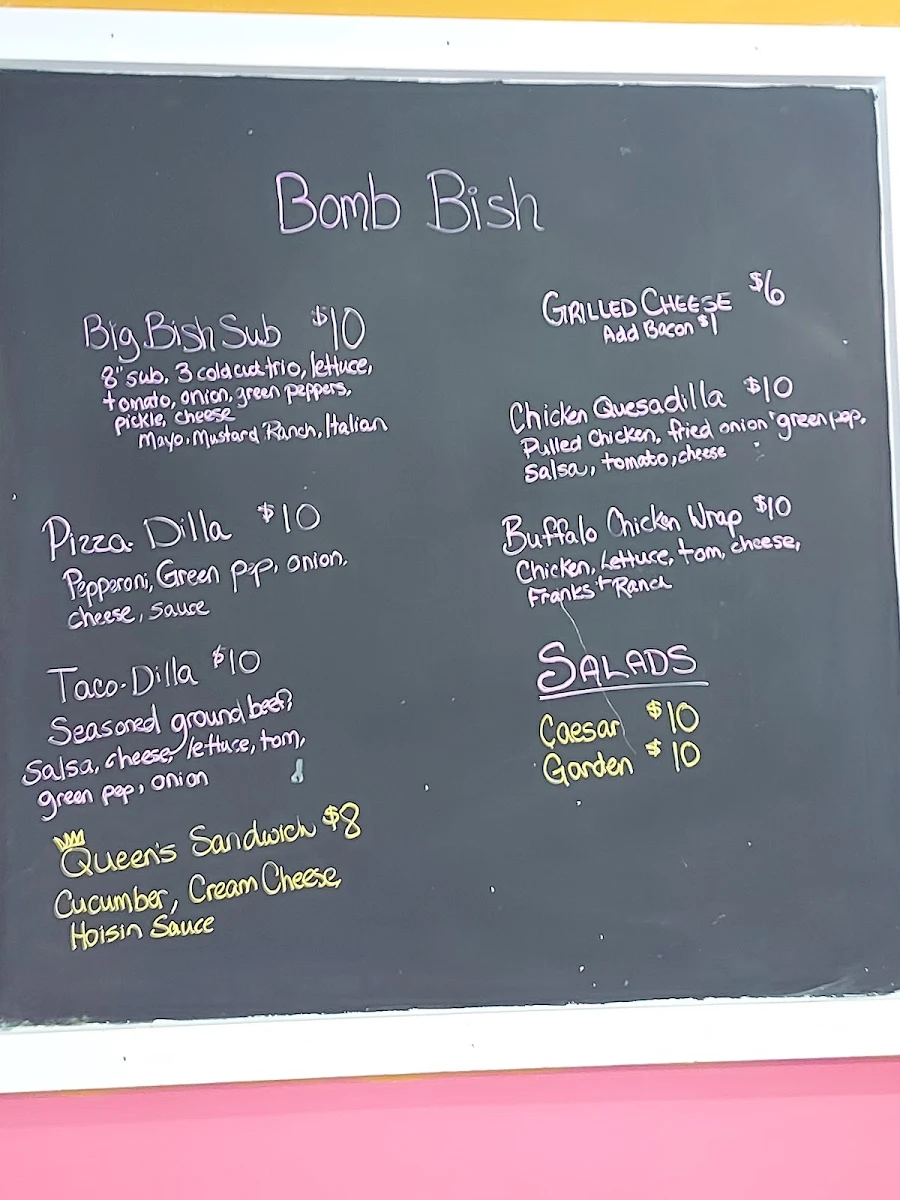 Bomb Bish
Big Bish Sub $10
8" sub, 3 cold cut trio, lettuce,
tomato, onion, green peppers,
pickle, cheese
Mayo, Mustard Ranch, Italian
Pizza Dilla $10
Pepperoni, Green pep, onion,
cheese, sauce
Taco-Dilla $10
Seasoned ground beef,
Salsa, cheese, lettuce, tom,
green pep, onion
Queen's Sandwich $8
Cucumber, Cream Cheese,
Hoisin Sauce
GRILLED CHEESE $6
Add Bacon $1
Chicken Quesadilla $10
Pulled Chicken, fried onion + green pep,
Salsa, tomato, cheese
Buffalo Chicken Wrap $10
Chicken, Lettuce, tom, cheese,
Franks + Ranch
SALADS
Caesar $10
Garden $10